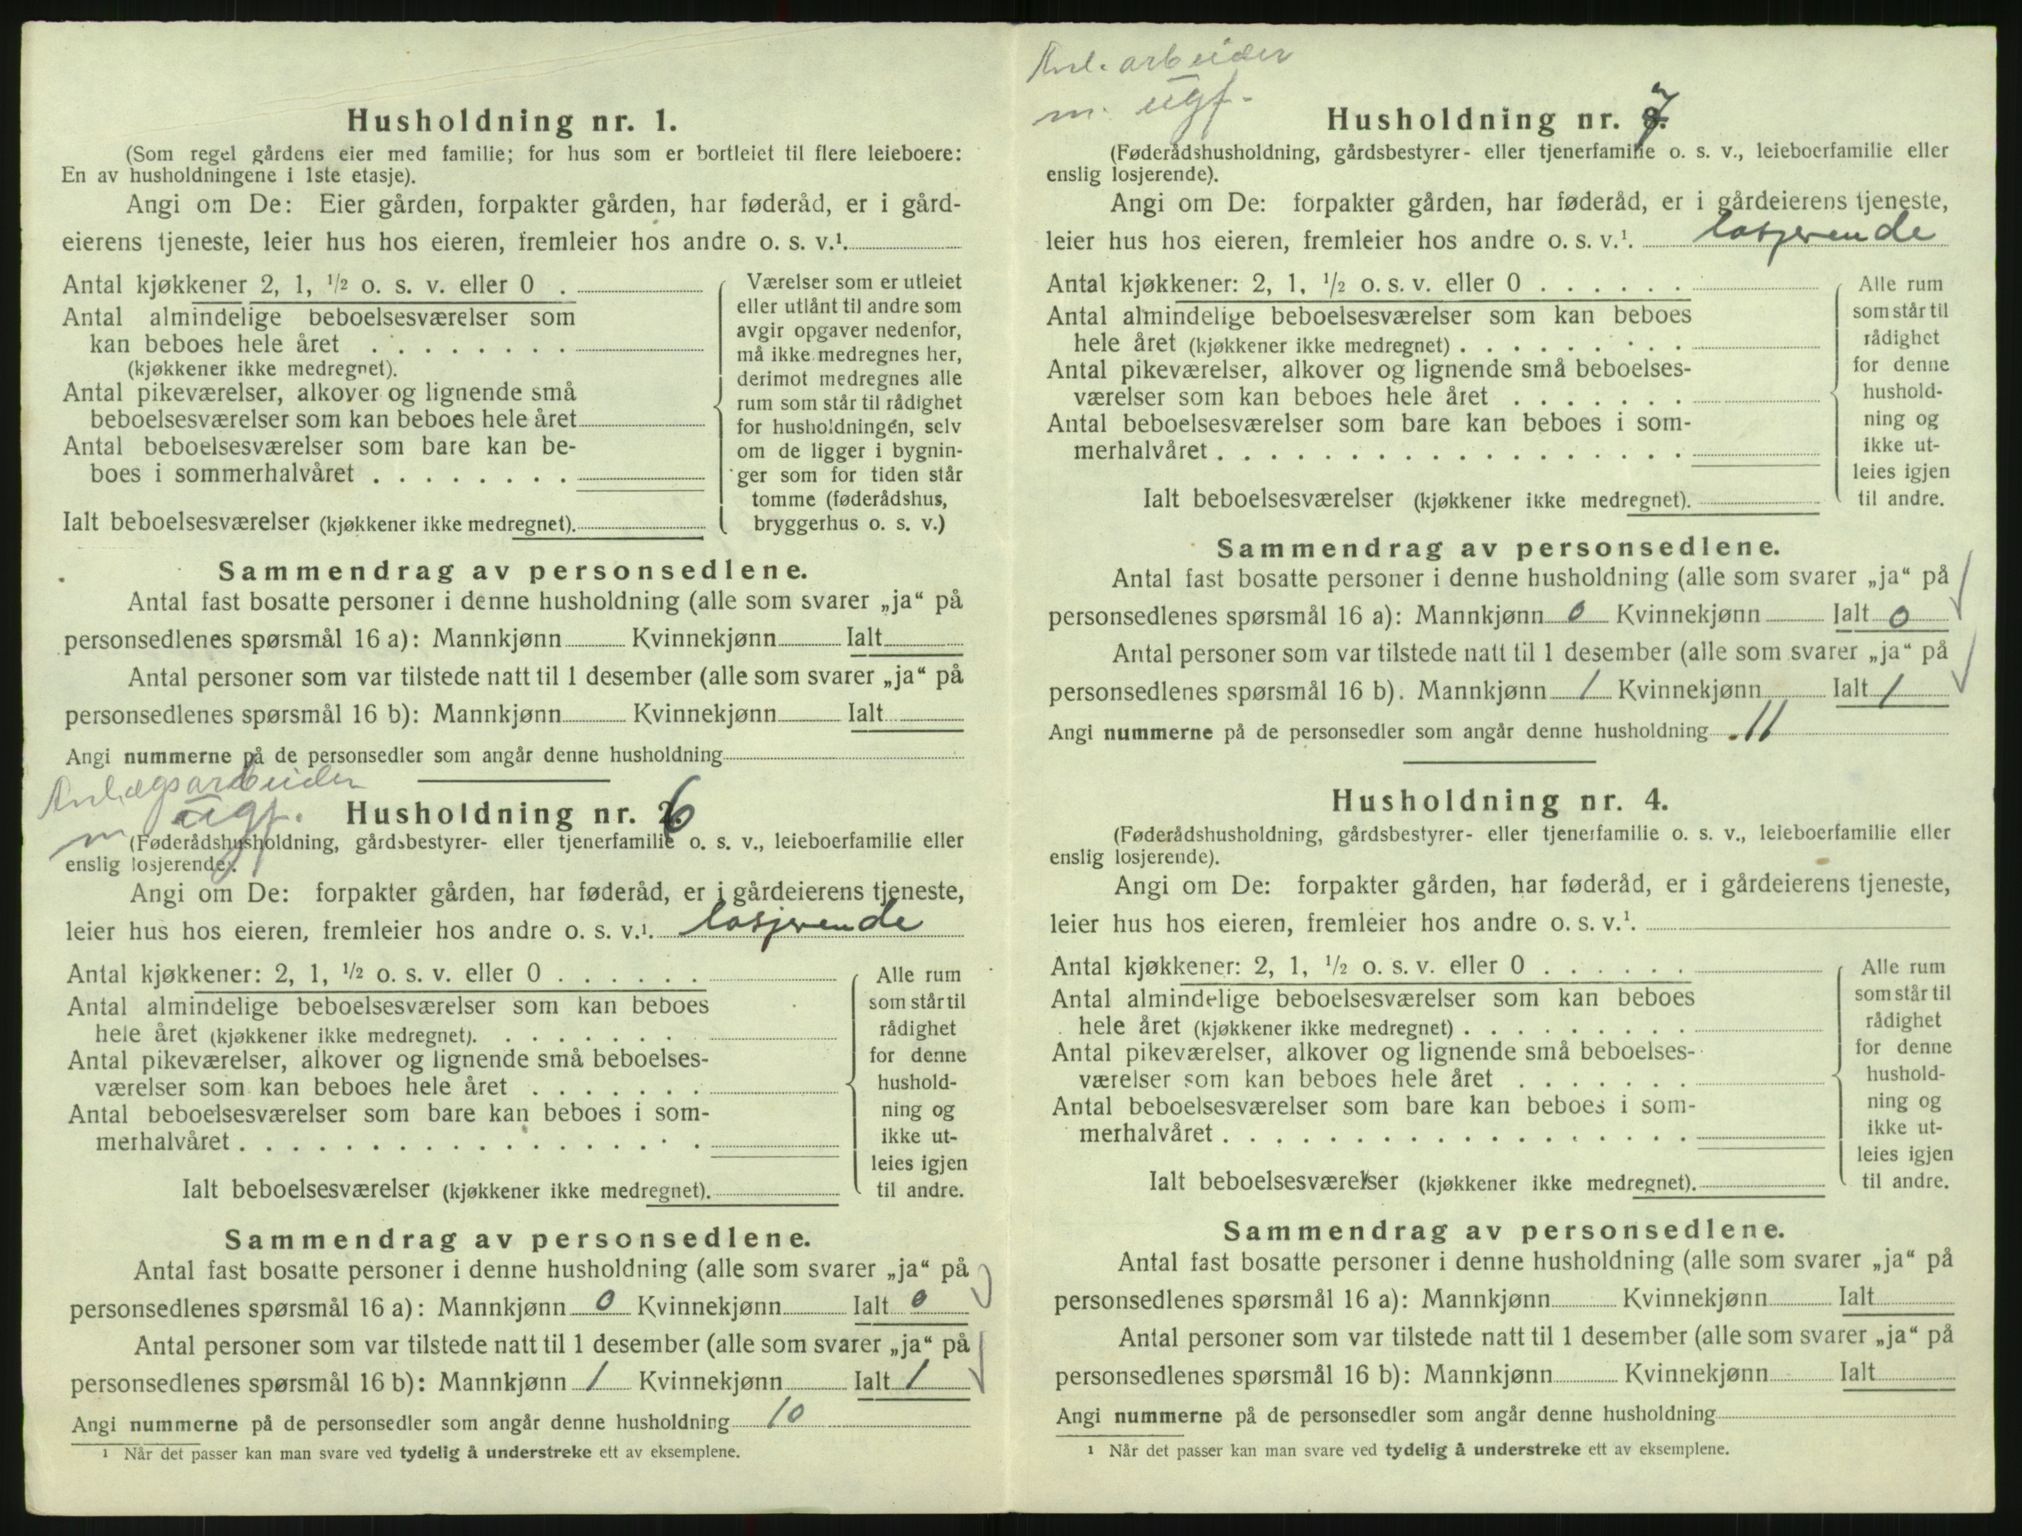 Husholdning nr. 1.
(Som regel gårdens eier med familie; for hus som er bortleiet til flere leieboere:
En av husholdningene i 1ste etasje).
Angi om De: Eier gården, forpakter gården, har føderåd, er i gård-
eierens tjeneste, leier hus hos eieren, fremleier hos andre o. s. v.¹.
Antal kjøkkener 2, 1, ½ o. s. v. eller 0 .
Antal almindelige beboelsesværelser som
kan beboes hele året . . . . . . . .
(kjøkkener ikke medregnet).
Antal pikeværelser, alkover og lignende små
beboelsesværelser som kan beboes hele året
Antal beboelsesværelser som bare kan be-
boes i sommerhalvåret . . . . . . . .
Ialt beboelsesværelser (kjøkkener ikke medregnet).
Værelser som er utleiet
eller utlånt til andre som
avgir opgaver nedenfor,
må ikke medregnes her,
derimot medregnes alle
rum som står til rådighet
for husholdningen, selv
om de ligger i bygnin-
ger som for tiden står
tomme (føderådshus,
bryggerhus o. s. v.)
Sammendrag av personsedlene.
Antal fast bosatte personer i denne husholdning (alle som svarer „ja“ på
personsedlenes spørsmål 16 a): Mannkjønn Kvinnekjønn Ialt
Antal personer som var tilstede natt til 1 desember (alle som svarer „ja“ på
personsedlenes spørsmål 16 b): Mannkjønn Kvinnekjønn Ialt
Angi nummerne på de personsedler som angår denne husholdning
Anlægsarbeider
m ugf.
Husholdning nr. 6
(Føderådshusholdning, gårdsbestyrer- eller tjenerfamilie o. s. v., leieboerfamilie eller
enslig losjerende).
Angi om De: forpakter gården, har føderåd, er i gårdeierens tjeneste,
leier hus hos eieren, fremleier hos andre o. s. v.¹. losjerende
Antal kjøkkener: 2, 1, ½ o. s. v. eller 0 . . . . . .
Antal almindelige beboelsesværelser som kan beboes
hele året (kjøkkener ikke medregnet). . . . . . . . .
Antal pikeværelser, alkover og lignende små beboelses-
værelser som kan beboes hele året . . . . . . .
Antal beboelsesværelser som bare kan beboes i som-
merhalvåret . . . . . . . . . . . . . . . . . .
Ialt beboelsesværelser (kjøkkener ikke medregnet).
Alle rum
som står til
rådighet
for denne
hushold-
ning og
ikke ut-
leies igjen
til andre.
Sammendrag av personsedlene.
Antal fast bosatte personer i denne husholdning (alle som svarer „ja“ på
personsedlenes spørsmål 16 a): Mannkjønn 0 Kvinnekjønn Ialt 0
Antal personer som var tilstede natt til 1 desember (alle som svarer „ja“ på
personsedlenes spørsmål 16 b): Mannkjønn 1 Kvinnekjønn Ialt 1
Angi nummerne på de personsedler som angår denne husholdning 10
¹ Når det passer kan man svare ved tydelig å understreke ett av eksemplene.
Anl. arbeider
m. ugf.
Husholdning nr. 7
(Føderådshusholdning, gårdsbestyrer- eller tjenerfamilie o. s. v., leieboerfamilie eller
enslig losjerende).
Angi om De: forpakter gården, har føderåd, er i gårdeierens tjeneste,
leier hus hos eieren, fremleier hos andre o. s. v.¹. losjerende
Antal kjøkkener: 2, 1, ½ o. s. v. eller 0 . . . . . .
Antal almindelige beboelsesværelser som kan beboes
hele året (kjøkkener ikke medregnet) . . . . . . . . .
Antal pikeværelser, alkover og lignende små beboelses-
værelser som kan beboes hele året . . . . . . .
Antal beboelsesværelser som bare kan beboes i som-
merhalvåret . . . . . . . . . . . . . . . . . .
Ialt beboelsesværelser (kjøkkener ikke medregnet).
Alle rum
som står til
rådighet
for denne
hushold-
ning og
ikke ut-
leies igjen
til andre.
Sammendrag av personsedlene.
Antal fast bosatte personer i denne husholdning (alle som svarer „ja“ på
personsedlenes spørsmål 16 a): Mannkjønn 0 Kvinnekjønn Ialt 0
Antal personer som var tilstede natt til 1 desember (alle som svarer „ja“ på
personsedlenes spørsmål 16 b). Mannkjønn 1 Kvinnekjønn Ialt 1
Angi nummerne på de personsedler som angår denne husholdning 11
Husholdning nr. 4.
(Føderådshusholdning, gårdsbestyrer- eller tjenerfamilie o. s. v., leieboerfamilie eller
enslig losjerende).
Angi om De: forpakter gården, har føderåd, er i gårdeierens tjeneste,
leier hus hos eieren, fremleier hos andre o. s. v.¹.
Antal kjøkkener: 2, 1, ½ o. s. v. eller 0 . . . . . .
Antal almindelige beboelsesværelser som kan beboes
hele året (kjøkkener ikke medregnet) . . . . . . . . .
Antal pikeværelser, alkover og lignende små beboelses-
værelser som kan beboes hele året . . . . . . .
Antal beboelsesværelser som bare kan beboes i som-
merhalvåret . . . . . . . . . . . . . . . . . .
Ialt beboelsesværelser (kjøkkener ikke medregnet).
Alle rum
som står til
rådighet
for denne
hushold-
ning og
ikke ut-
leies igjen
til andre.
Sammendrag av personsedlene.
Antal fast bosatte personer i denne husholdning (alle som svarer „ja“ på
personsedlenes spørsmål 16 a): Mannkjønn Kvinnekjønn Ialt
Antal personer som var tilstede natt til 1 desember (alle som svarer „ja“ på
personsedlenes spørsmål 16 b): Mannkjønn Kvinnekjønn Ialt
Angi nummerne på de personsedler som angår denne husholdning
¹ Når det passer kan man svare ved tydelig å understreke ett av eksemplene.